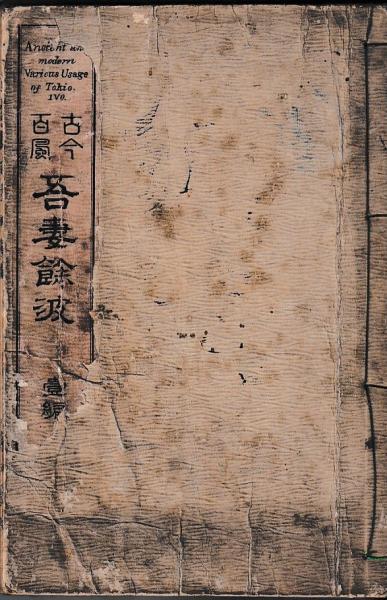 Ancient and
modern
Various Usage
of Tokio.
1VO.
古今
百風
吾妻餘波
壹編